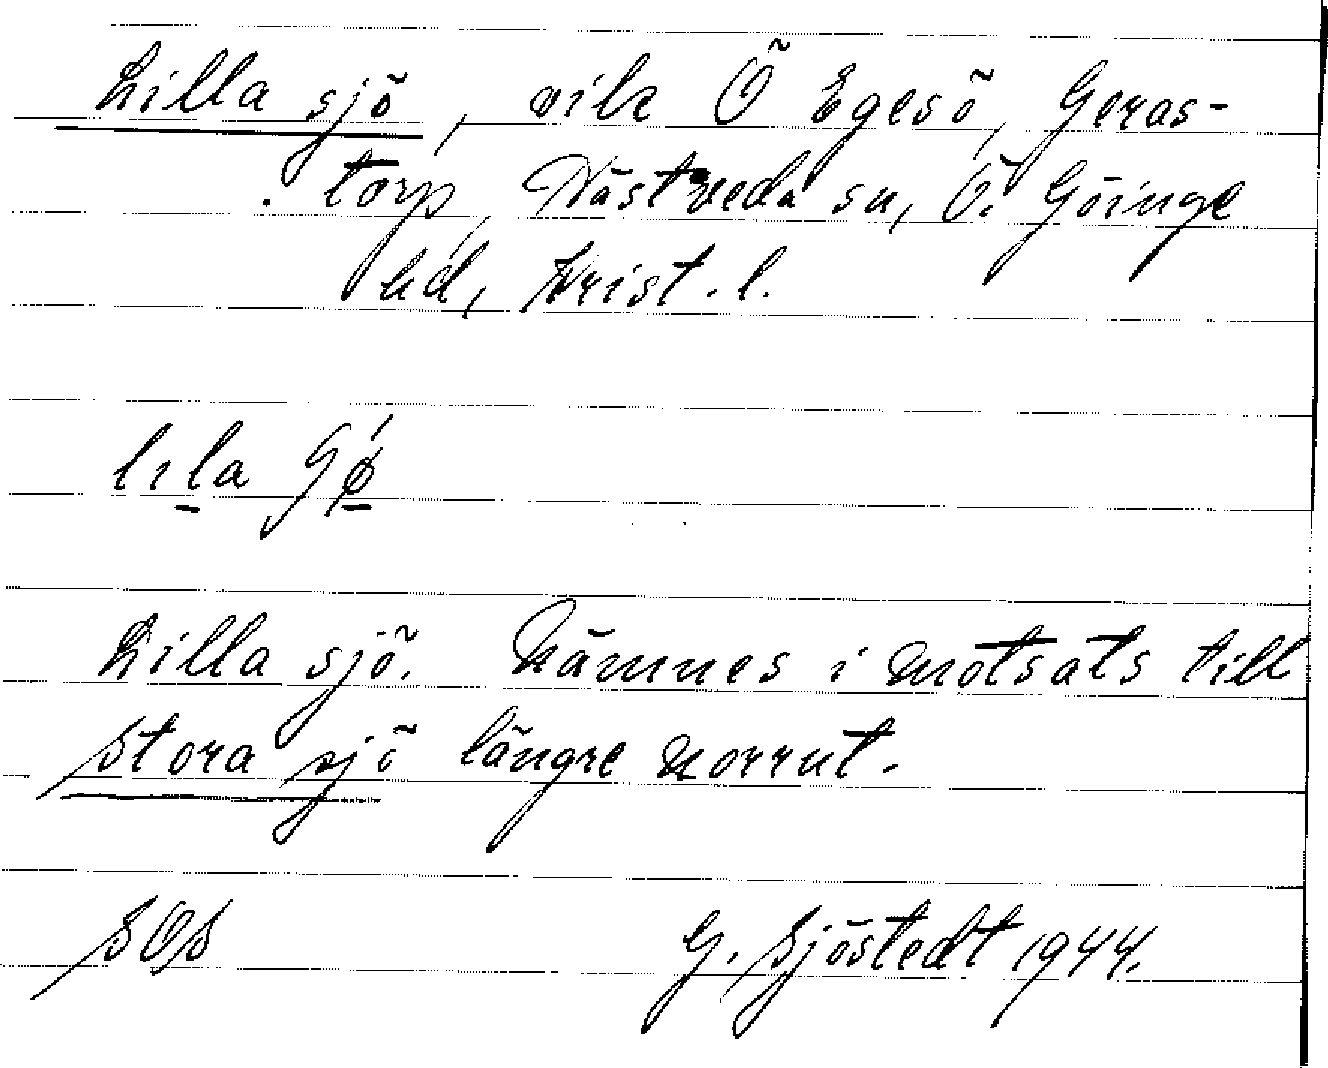 Lilla sjö, vik Ö Egesö, Geras-
torp, Västveda sn, Ö. Göinge
hd, Krist. l.
Lilla sjö. Nämnes i motsats till
Stora sjö längre norrut.
SOS G. Sjöstedt 1944.